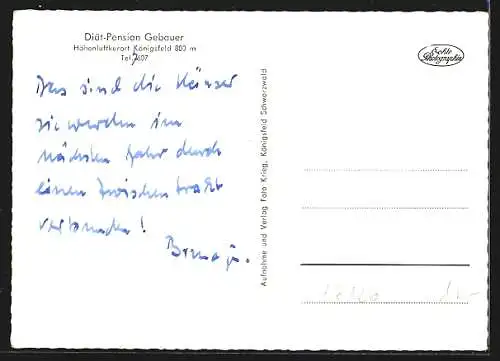 Diät-Pension Gebauer
Höhenluftkurort Königsfeld 800 m
Tel. 7407
Echte
Photographie
Das sind die Häuser
sie werden im
nächsten Jahr durch
einen Zwischentrakt
verbunden!
Aufnahme und Verlag Foto Krieg, Königsfeld Schwarzwald